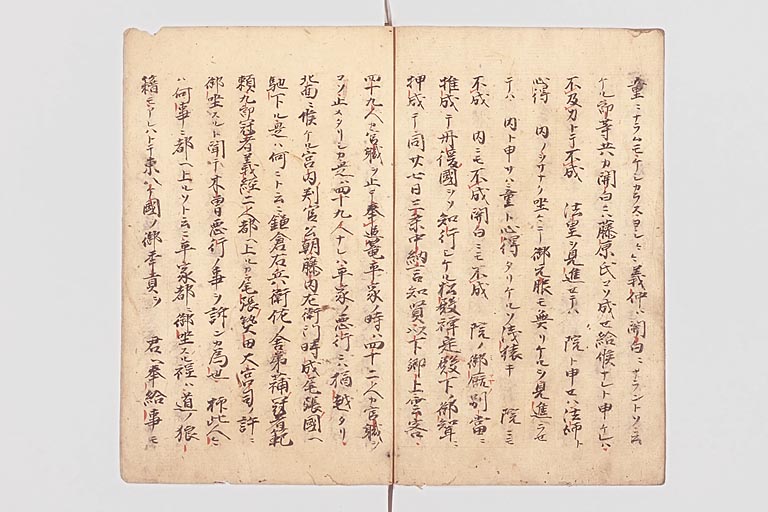 童ニナラムモケシカラスヨシ〻〻義仲ハ関白ニナラントソ云
ケル郎等共カ関白ニハ藤原氏コソ成セ給候ナレト申ケレハ
不及力トテ不成 法皇ヲ見進セテハ 院ト申セハ法師ト
心得 内ノヲサナク坐ケニ御元服モ無リケルヲ見進ラセ
テハ 内ト申サハ童ト心得タリケルソ浅猿キ 院ニモ
不成 内ニモ不成関白ニモ不成 院ノ御厩別当ニ
推成テ丹後国ヲソ知行シケル松殿禅定殿下ノ御聟ニ
押成テ同廿七日三条中納言知賢以下卿上雲客
四十九人カ官職ヲ止テ奉追籠平家ノ時ハ四十二人カ官職ヲ
コソ止メタリシカ是ハ四十九人ナレハ平家ノ悪行ニハ猶越タリ
北面ニ候ケル宮内判官公朝藤内左衛門時成尾張国ヘ
馳下ル是ハ何ニト云ニ鎌倉右兵衛佐ノ舎弟蒲冠者範
頼九郎冠者義経二人都ヘ上ルカ尾張熱田大宮司ノ許ニ
御坐スルト聞テ木曽悪行ノ事ヲ訴ンカ為也 抑此人々
ハ何事ニ都ヘ上ルソト云ニ平家都ニ御坐スル程ハ道ノ狼
籍モアレハトテ東八ケ国ノ御年貢ヲ 君ヘ奉給事モ